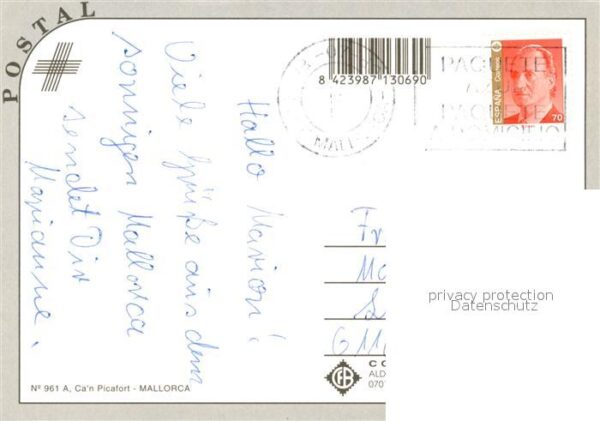 POSTAL
8 423987 130690
MALL
PAQUETE
AZUL
PAQUETE
A DOMICILIO
ESPAÑA Correos
70
Hallo Marion!
Viele Grüße aus dem
sonnigen Mallorca
sendet Dir
Marianne.
Fr
611
privacy protection
Datenschutz
CO
ALD
070
Nº 961 A, Ca'n Picafort - MALLORCA